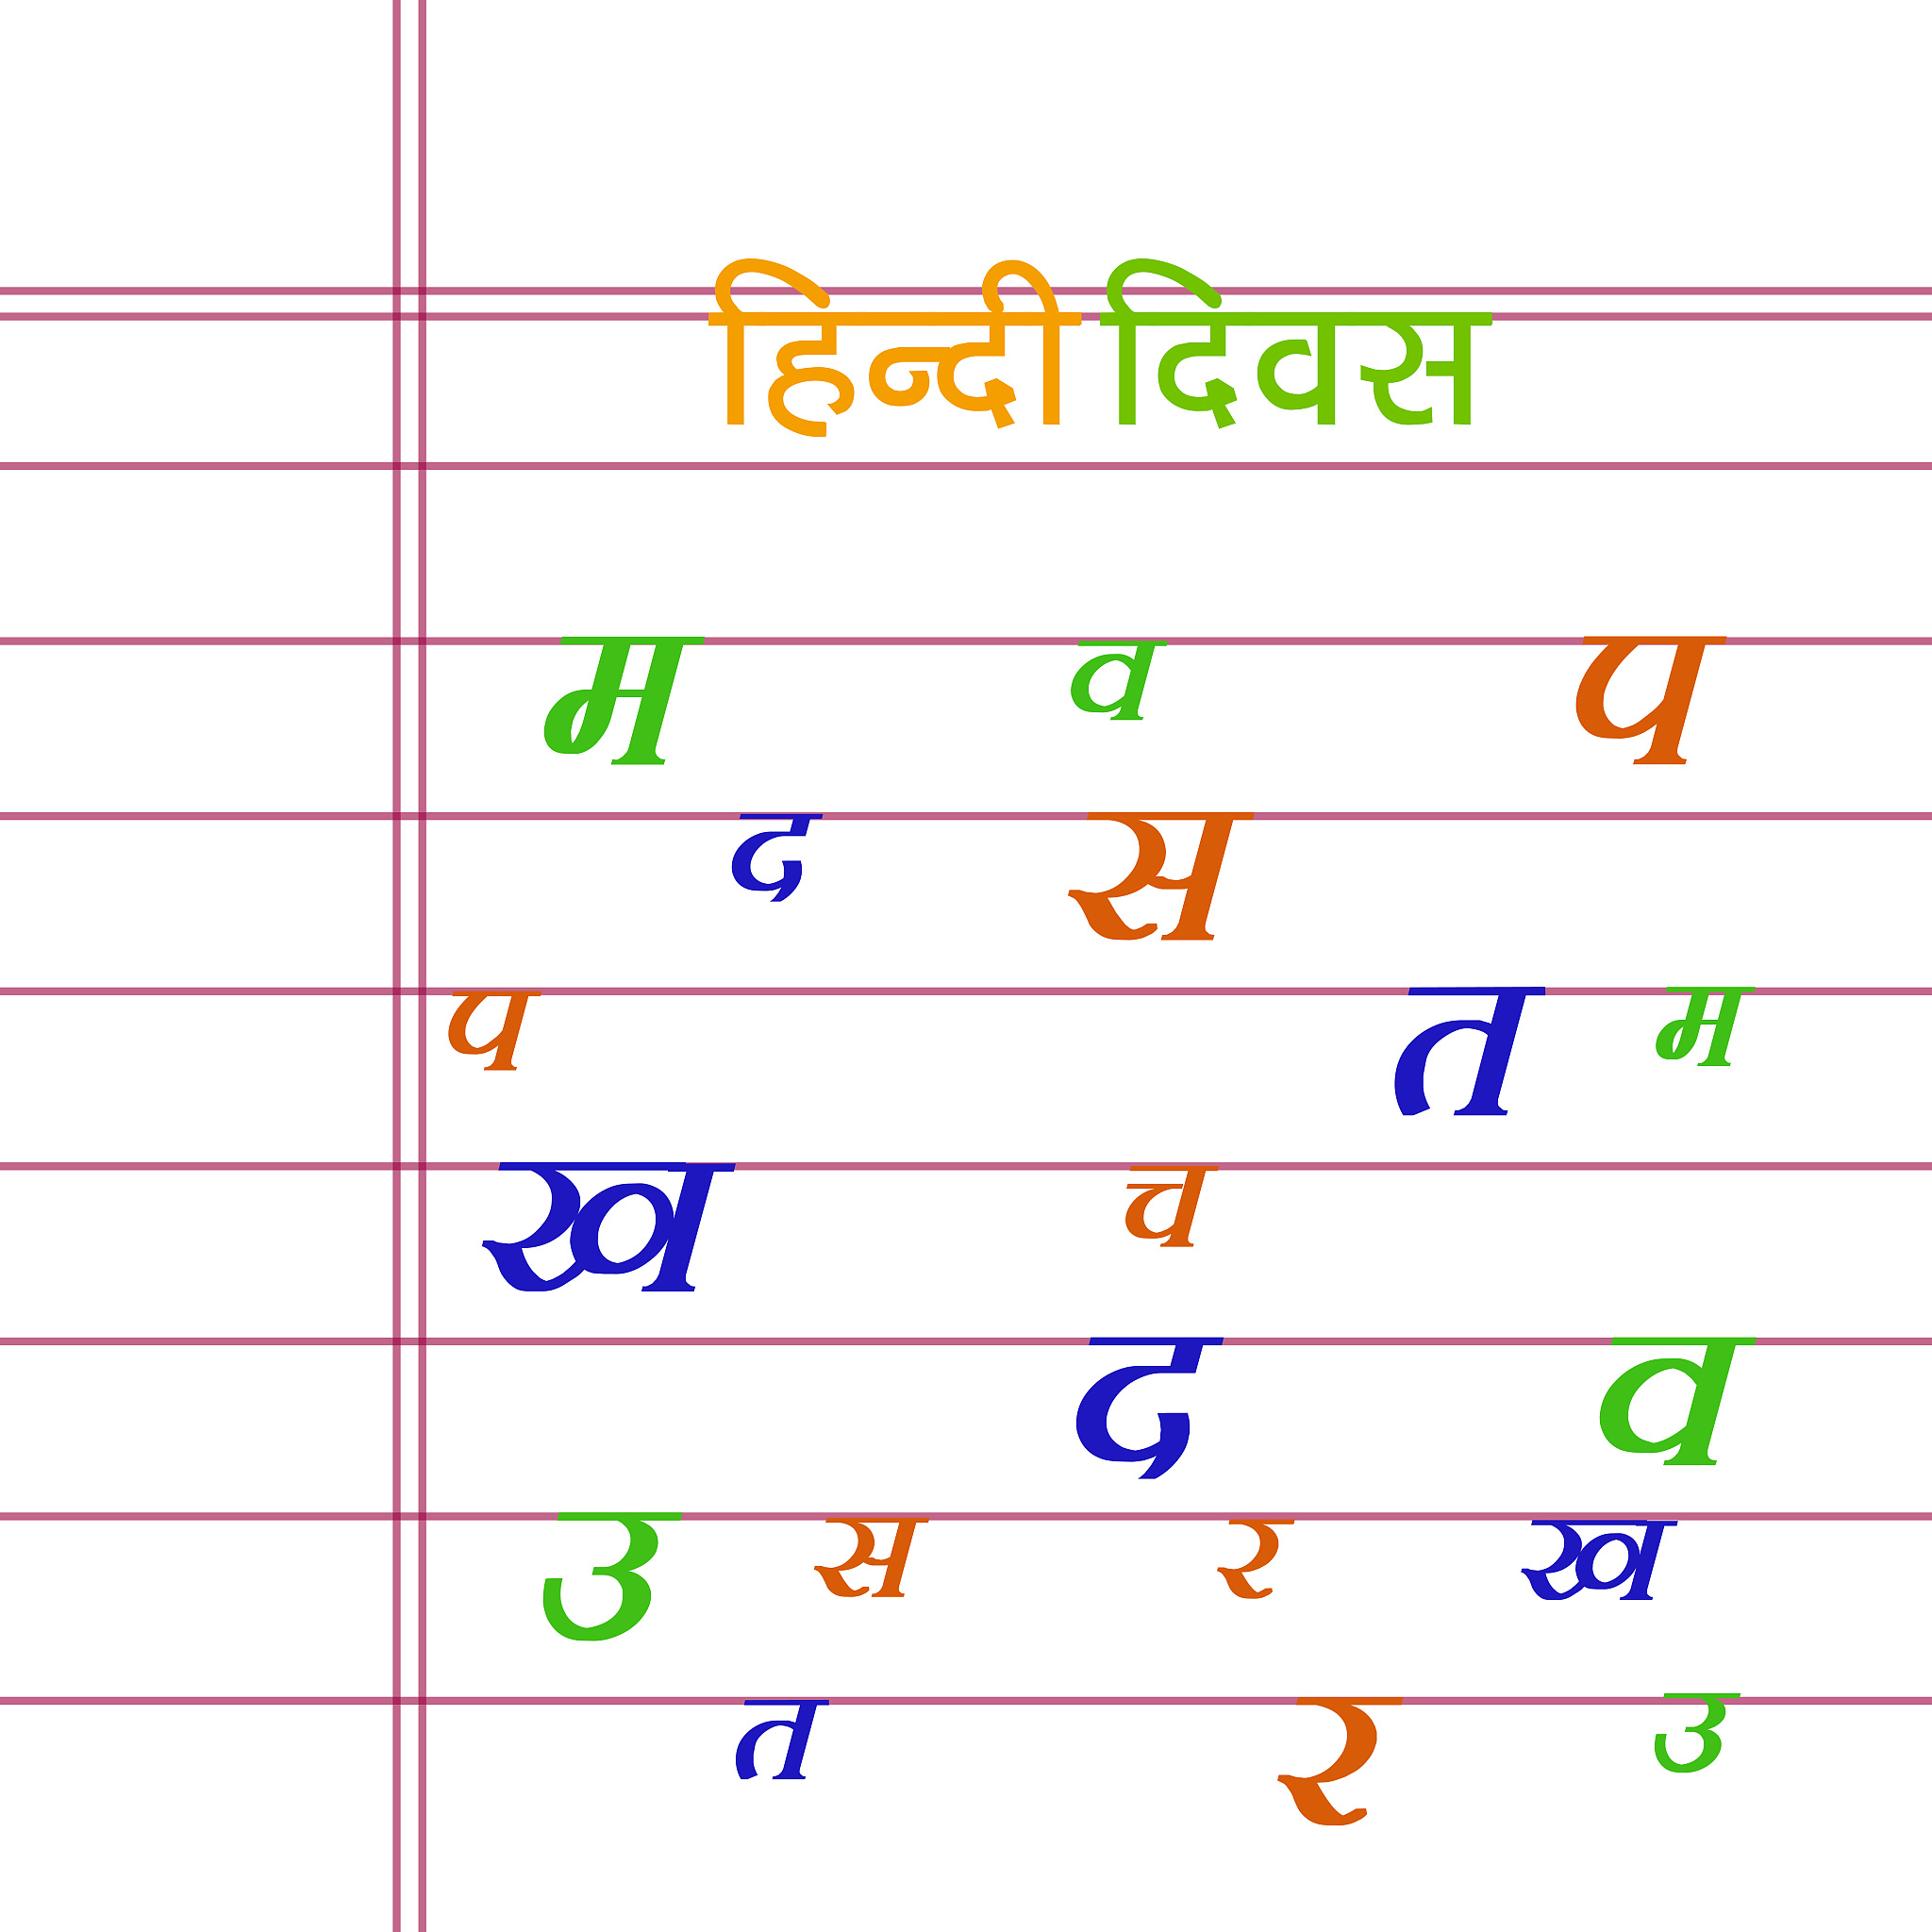 हिन्दी दिवस
म व प
द स
प त म
ख च
द व
उ स र ख
त र उ